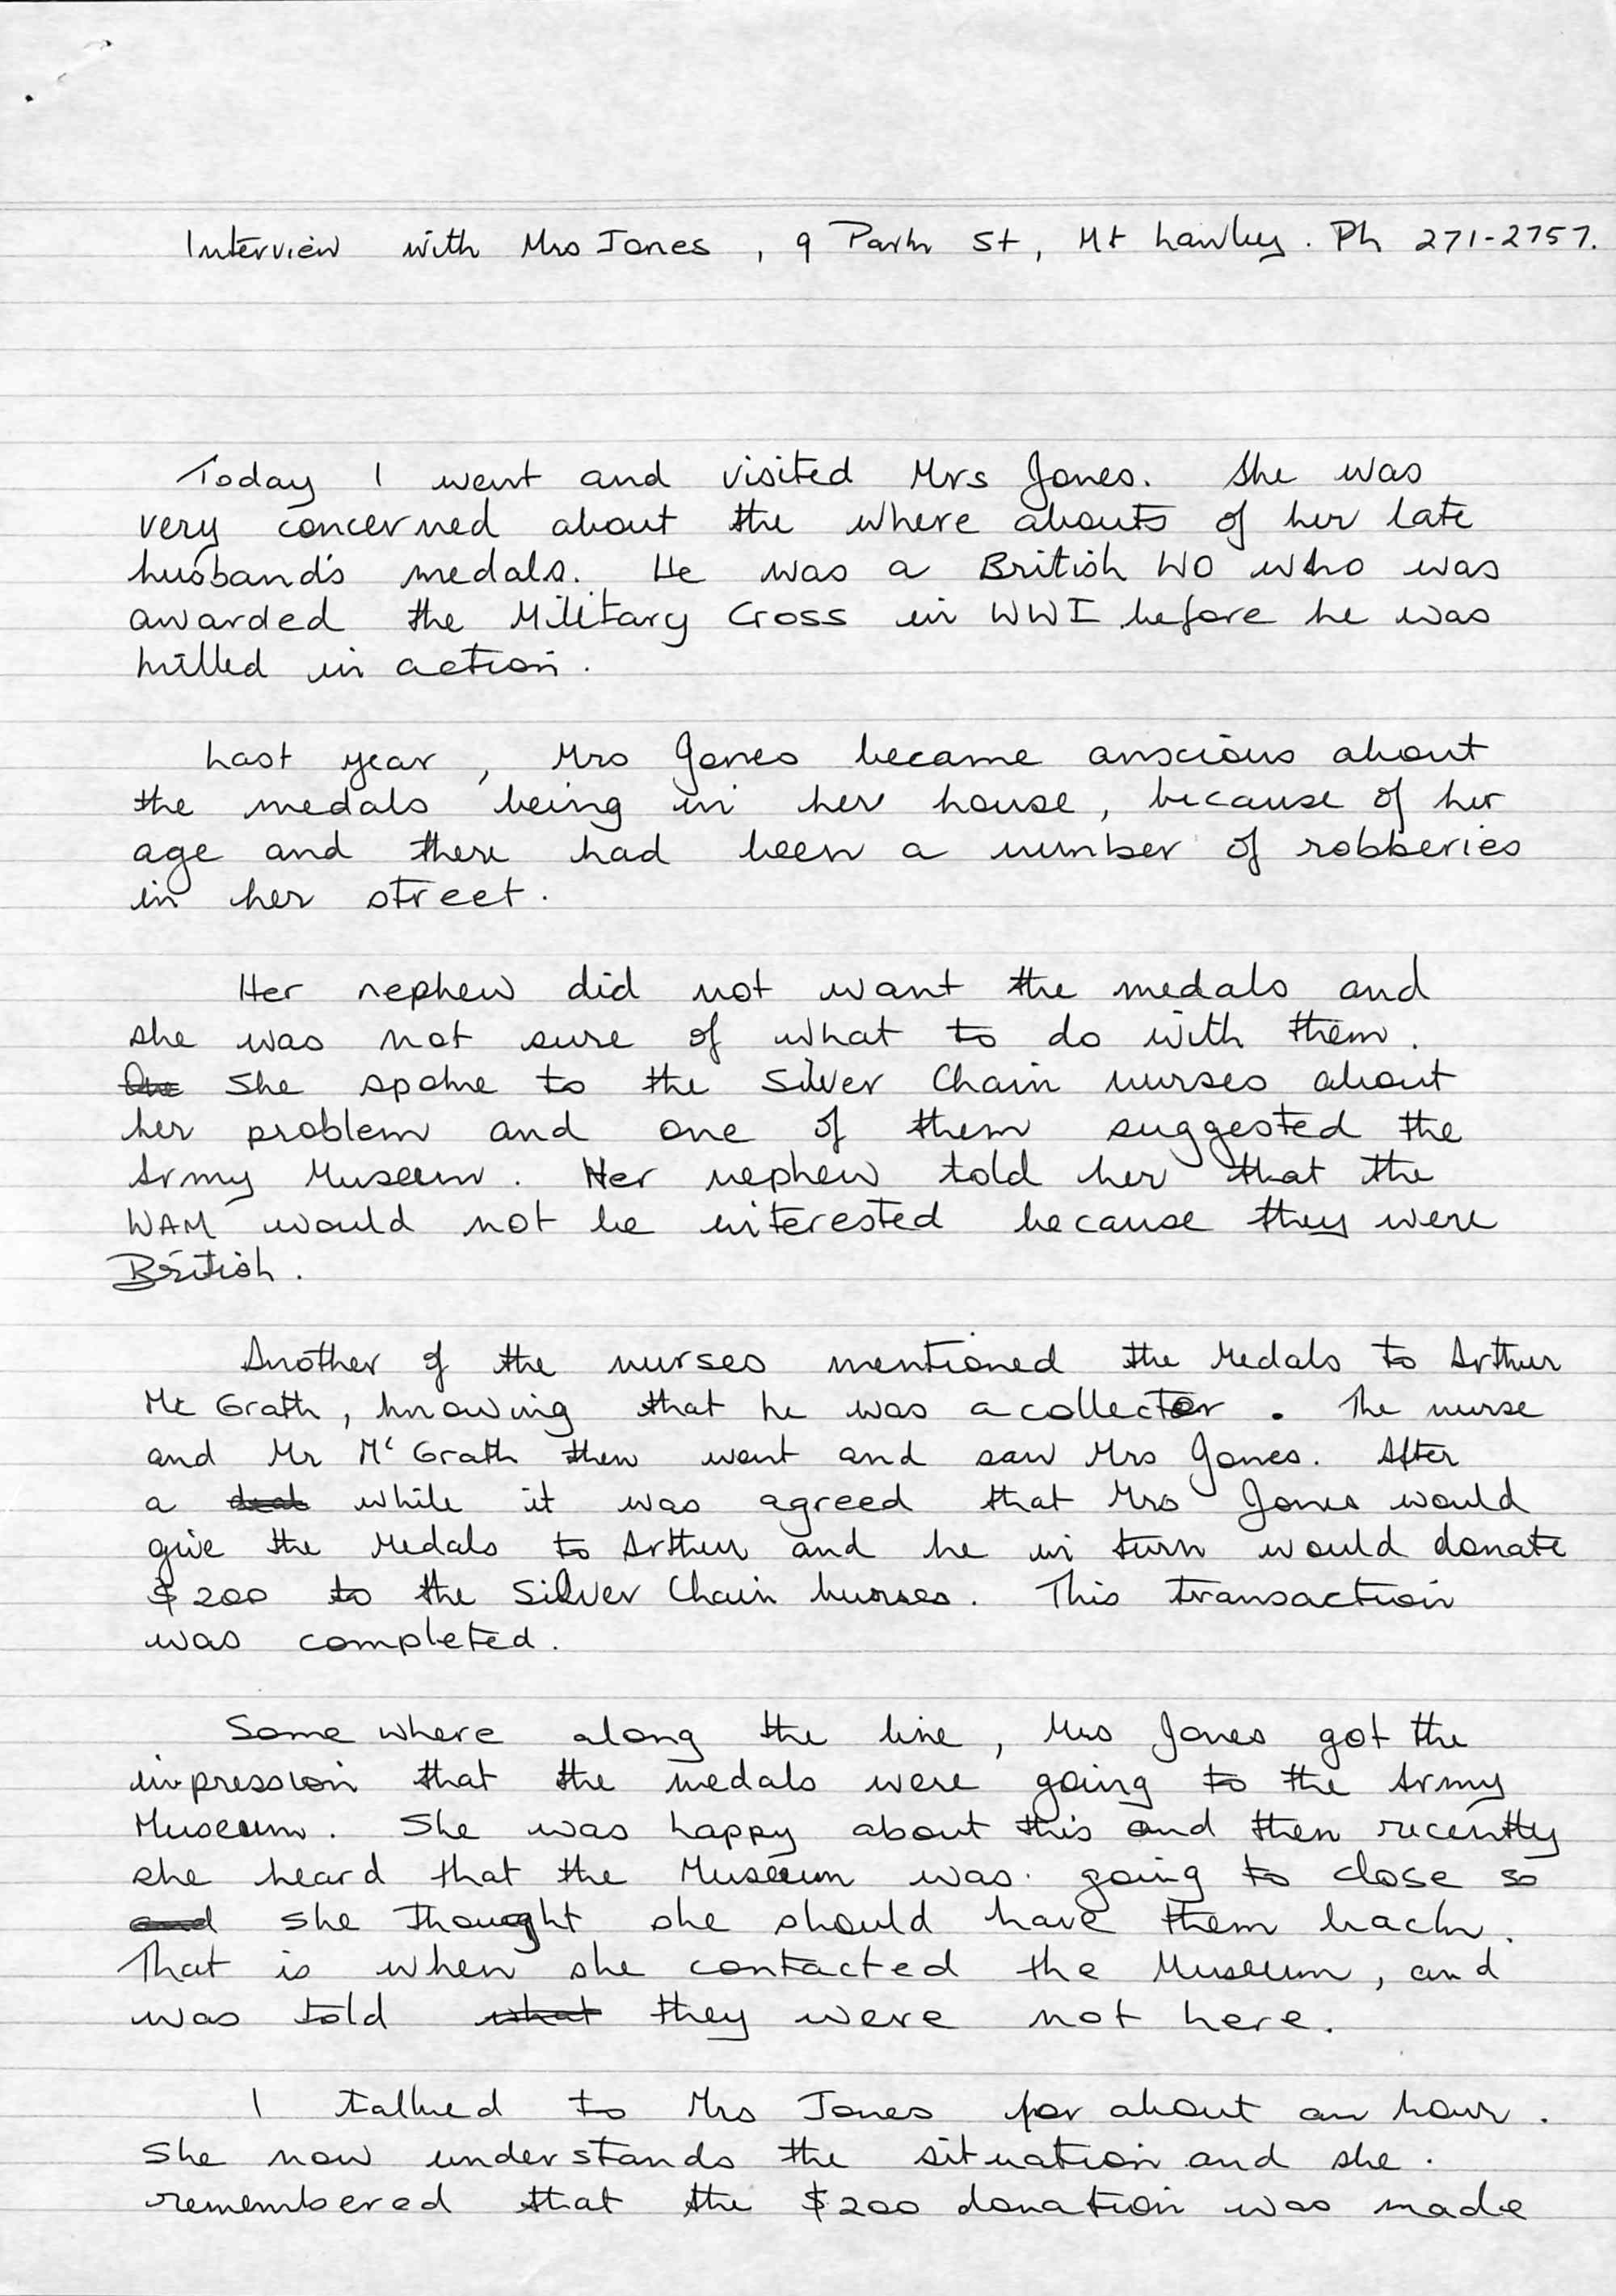 Interview with Mrs Jones, 9 Park St, Mt Lawley. Ph 271-2757.
Today I went and visited Mrs Jones. She was
very concerned about the where abouts of her late
husband's medals. He was a British WO who was
awarded the Military Cross in WWI before he was
killed in action.
Last year, Mrs Jones became anscious about
the medals being in her house, because of her
age and there had been a number of robberies
in her street.
Her nephew did not want the medals and
she was not sure of what to do with them.
She spoke to the Silver Chain nurses about
her problem and one of them suggested the
Army Museum. Her nephew told her that the
WAM would not be interested because they were
British.
Another of the nurses mentioned the Medals to Arthur
Mc Grath, knowing that he was a collector. The nurse
and Mr Mc Grath then went and saw Mrs Jones. After
a while it was agreed that Mrs Jones would
give the Medals to Arthur and he in turn would donate
$200 to the Silver Chain nurses. This transaction
was completed.
Some where along the line, Mrs Jones got the
impression that the medals were going to the Army
Museum. She was happy about this and then recently
she heard that the Museum was going to close so
and she thought she should have them back.
That is when she contacted the Museum, and
was told what they were not here.
I talked to Mrs Jones for about an hour.
She now understands the situation and she.
remembered that the $200 donation was made